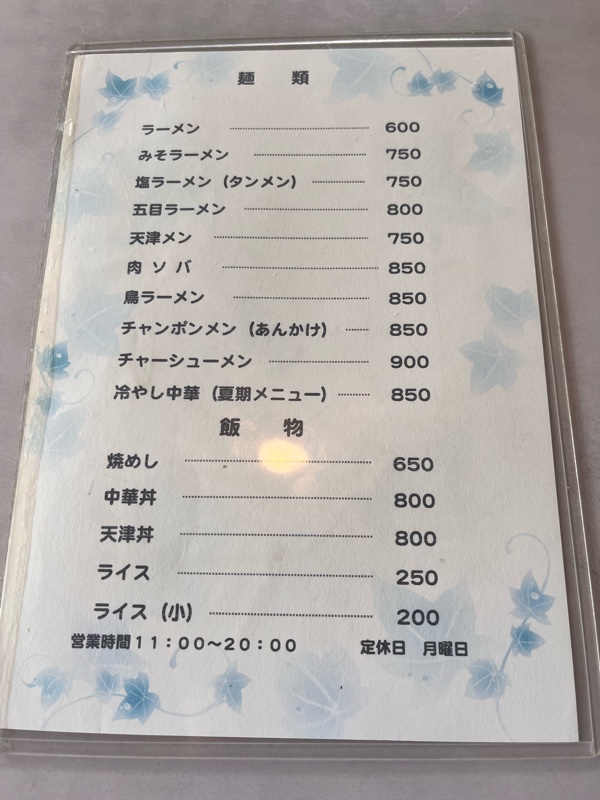 麺　類
ラーメン 600
みそラーメン 750
塩ラーメン（タンメン） 750
五目ラーメン 800
天津メン 750
肉 ソ バ 850
鳥ラーメン 850
チャンポンメン（あんかけ） 850
チャーシューメン 900
冷やし中華（夏期メニュー） 850
飯　物
焼めし 650
中華丼 800
天津丼 800
ライス 250
ライス（小） 200
営業時間１１：００〜２０：００　定休日　月曜日